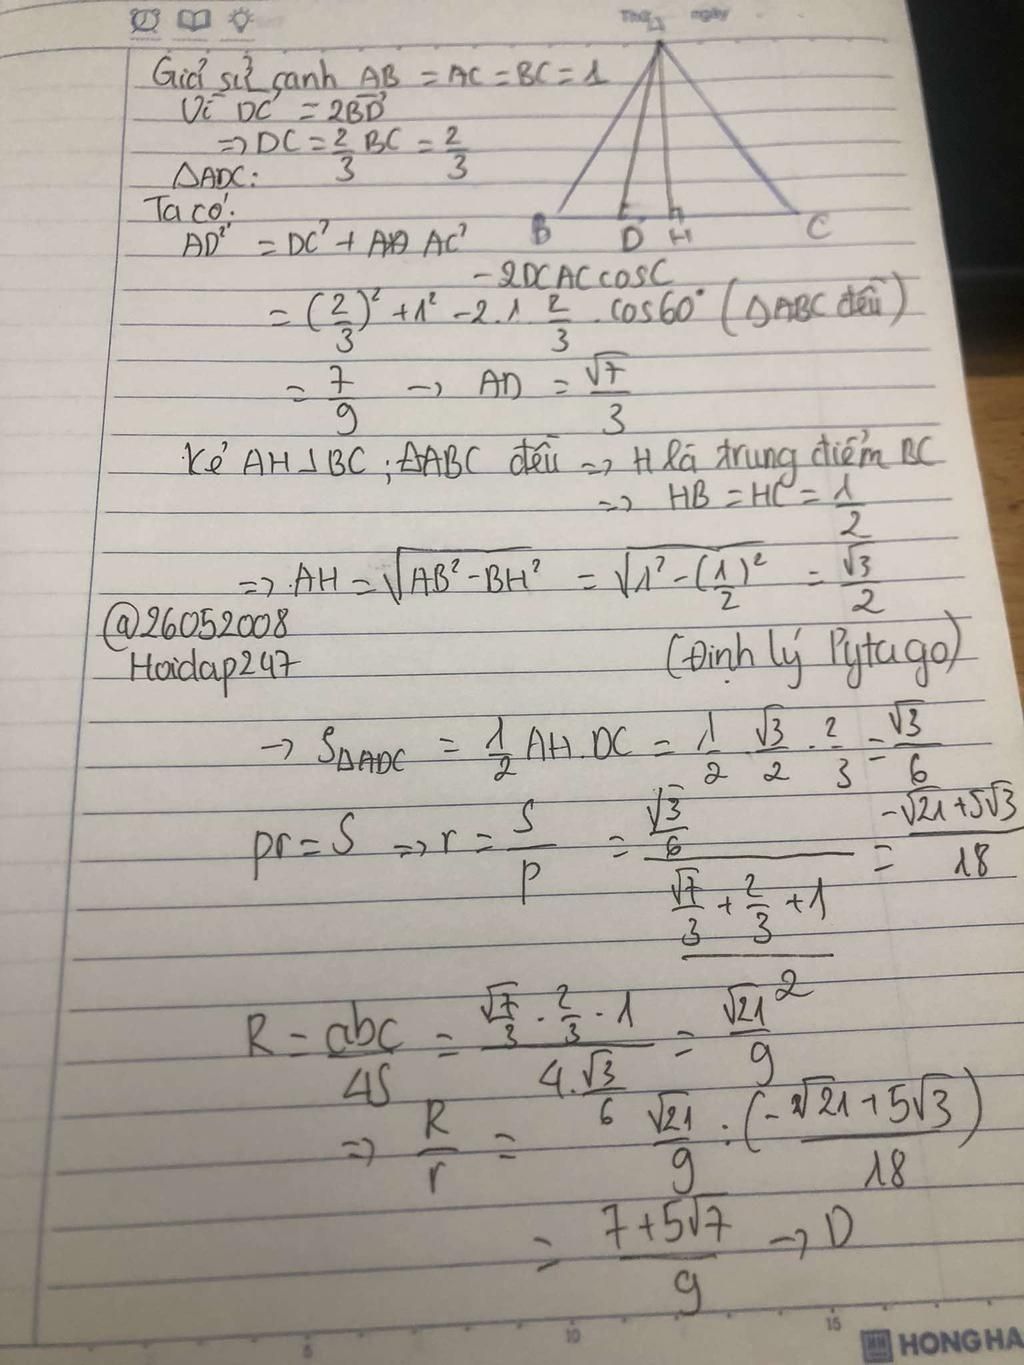 Thứ ngày
Giả sử cạnh AB = AC = BC = 1
Vì DC = 2BD
=> DC = 2/3 BC = 2/3
ΔADC:
Ta có:
AD² = DC² + AC²
- 2DC AC cosC
= (2/3)² + 1² - 2.1 2/3 . cos60° (ΔABC đều)
= 7/9 → AD = √7/3
Kẻ AH⊥BC; ΔABC đều => H là trung điểm BC
=> HB = HC = 1/2
=> AH = √(AB² - BH²) = √(1² - (1/2)²) = √3/2
@26052008
Hoidap247
(Định lý Pytago)
→ SΔADC = 1/2 AH.DC = 1/2 . √3/2 . 2/3 = √3/6
pr = S => r = S/p = (√3/6)/((√7/3 + 2/3 + 1)/2) = (-√21+5√3)/18
R = abc/4S = (√7/3 . 2/3 . 1)/(4.√3/6) = √21/9
=> R/r = √21/9 : (-√21+5√3)/18
= (7+5√7)/9 → D
A
B D H C
5 10 15
HH HONG HA